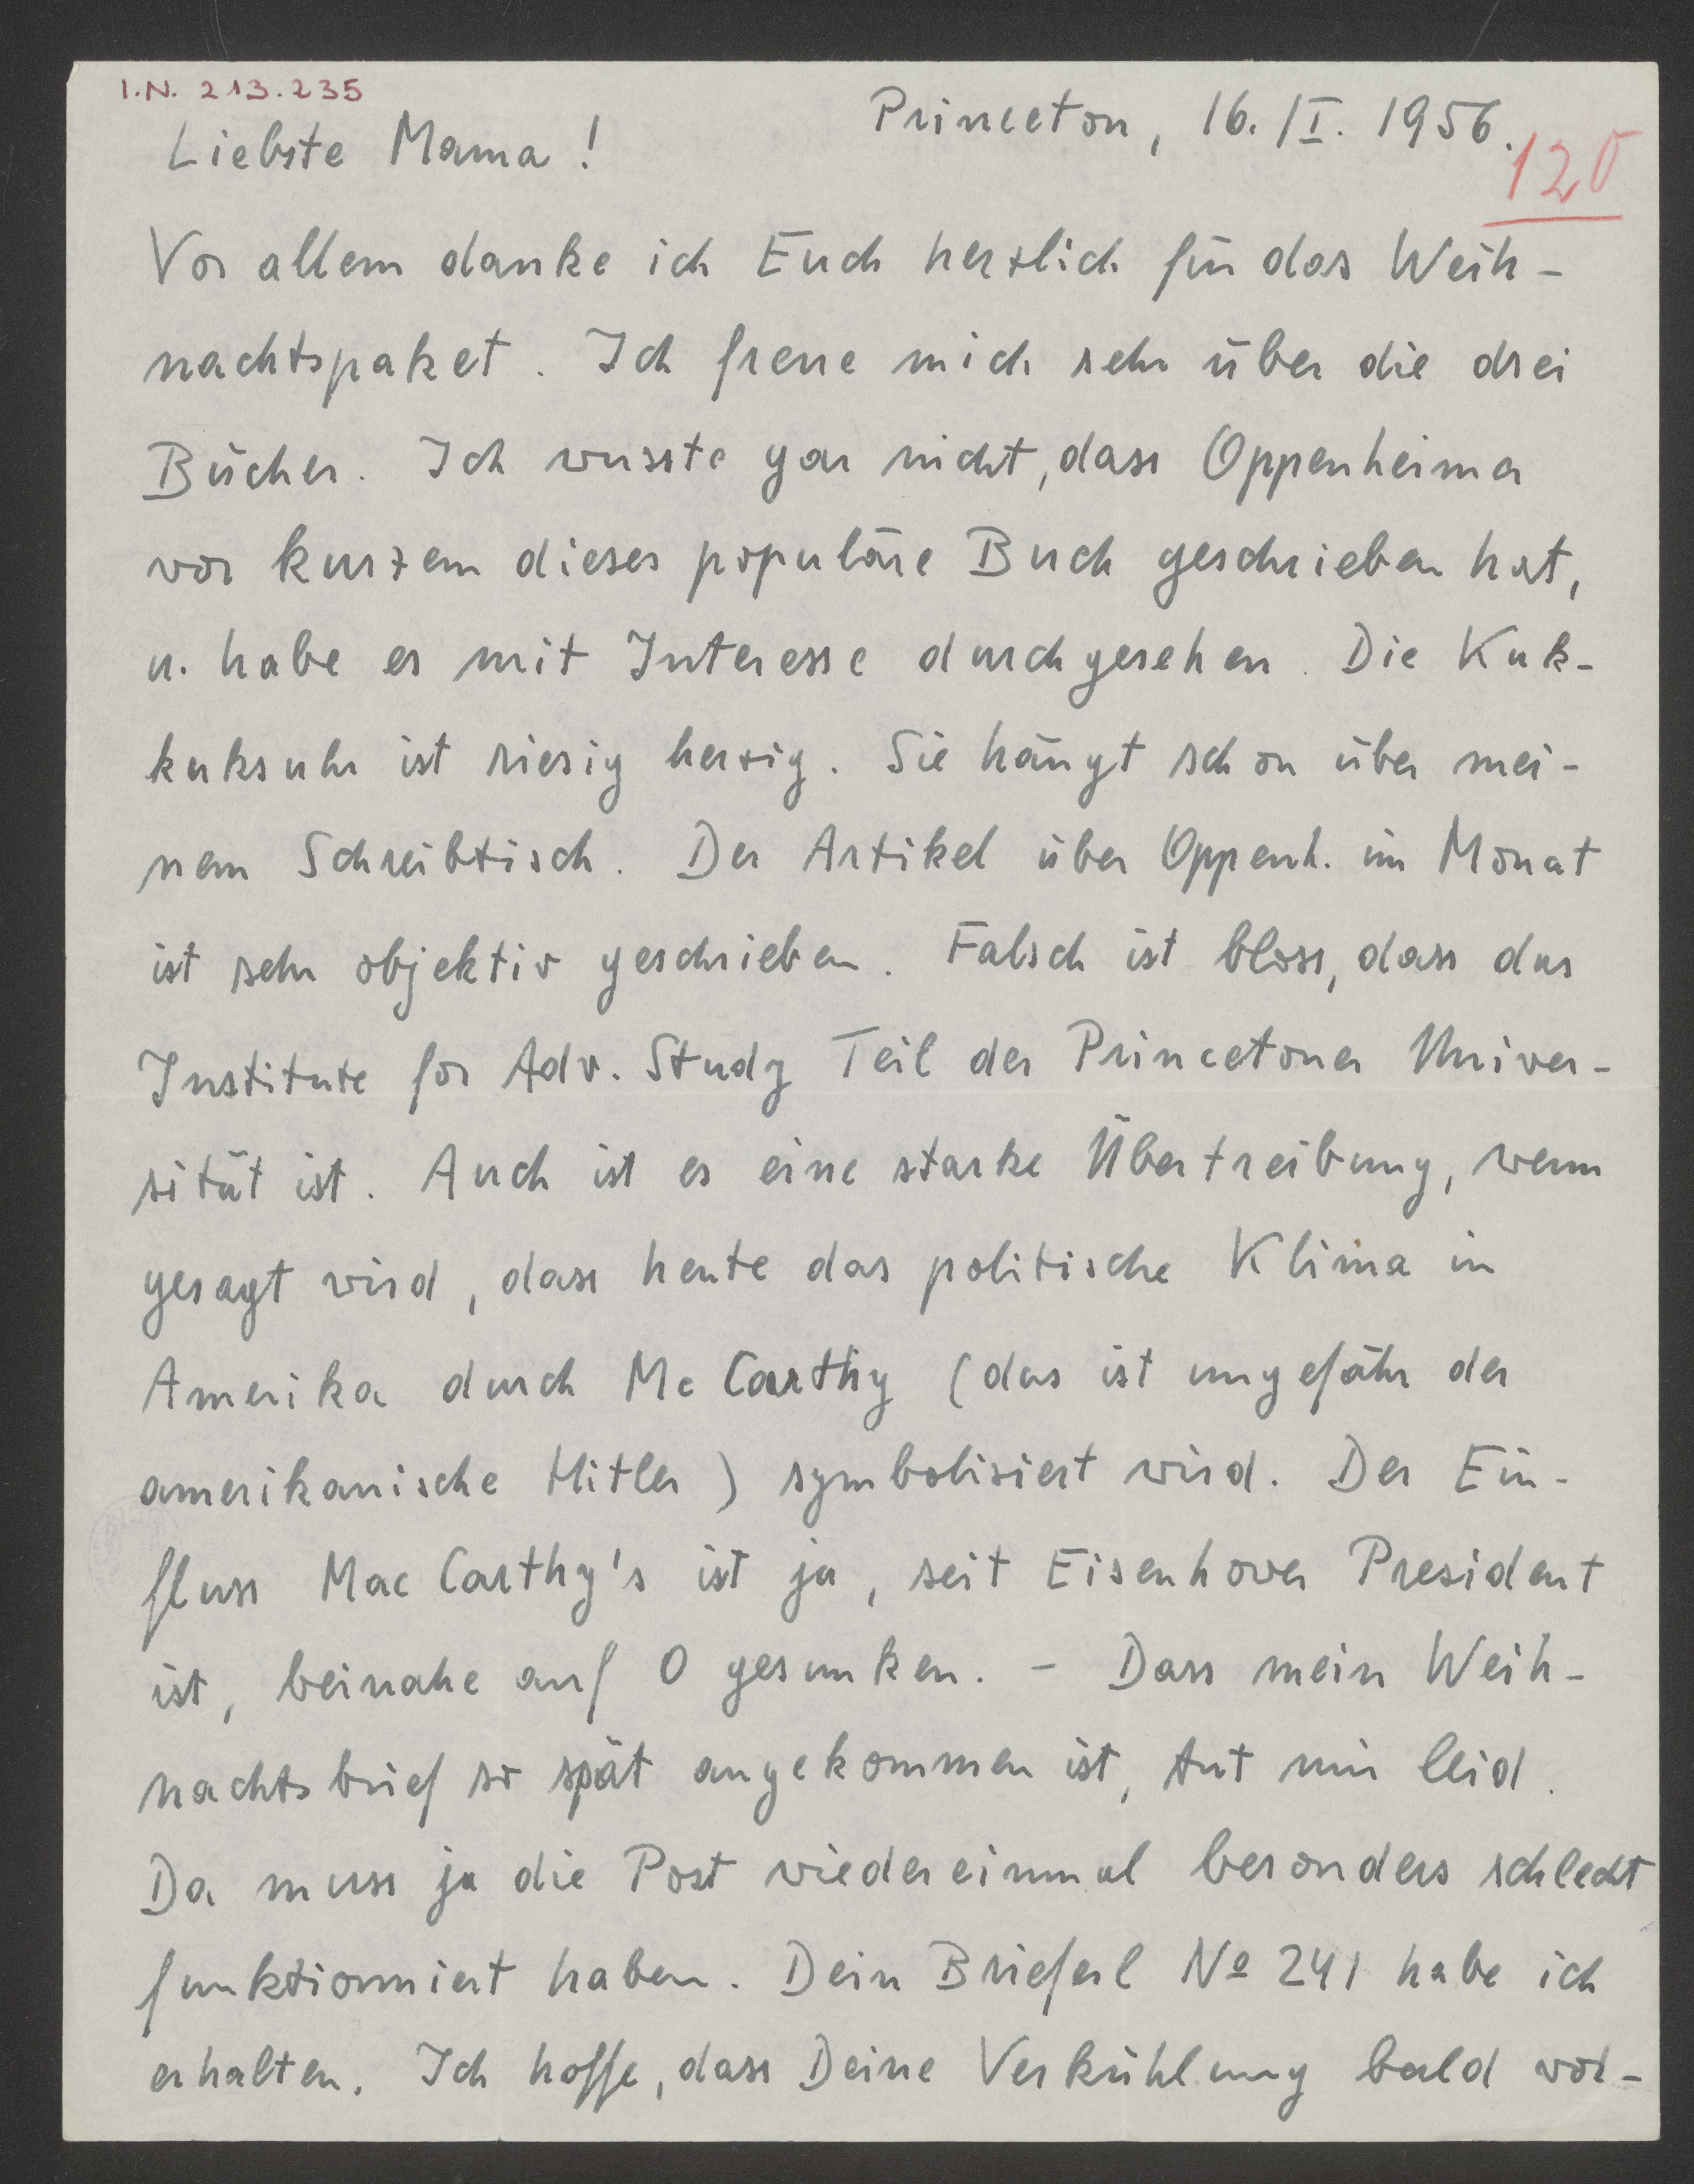 I.N. 213.235
Princeton, 16./I. 1956.
120
Liebste Mama!
Vor allem danke ich Euch herzlich für das Weih-
nachtspaket. Ich freue mich sehr über die drei
Bücher. Ich wusste gar nicht, dass Oppenheimer
vor kurzem dieses populäre Buch geschrieben hat,
u. habe es mit Interesse durchgesehen. Die Kuk-
kuksuhr ist riesig herzig. Sie hängt schon über mei-
nem Schreibtisch. Der Artikel über Oppenh. im Monat
ist sehr objektiv geschrieben. Falsch ist bloss, dass das
Institute for Adv. Study Teil der Princetoner Univer-
sität ist. Auch ist es eine starke Übertreibung, wenn
gesagt wird, dass heute das politische Klima in
Amerika durch Mc Carthy (das ist ungefähr der
amerikanische Hitler) symbolisiert wird. Der Ein-
fluss Mac Carthy's ist ja, seit Eisenhower President
ist, beinahe auf 0 gesunken. - Dass mein Weih-
nachtsbrief so spät angekommen ist, tut mir leid.
Da muss ja die Post wiedereinmal besonders schlecht
funktionniert haben. Dein Brieferl No 241 habe ich
erhalten. Ich hoffe, dass Deine Verkühlung bald vor-